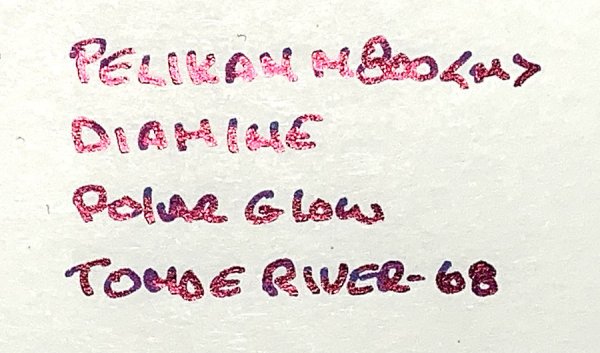 PELIKAN M800<M>
DIAMINE
POLAR GLOW
TOMOE RIVER-68